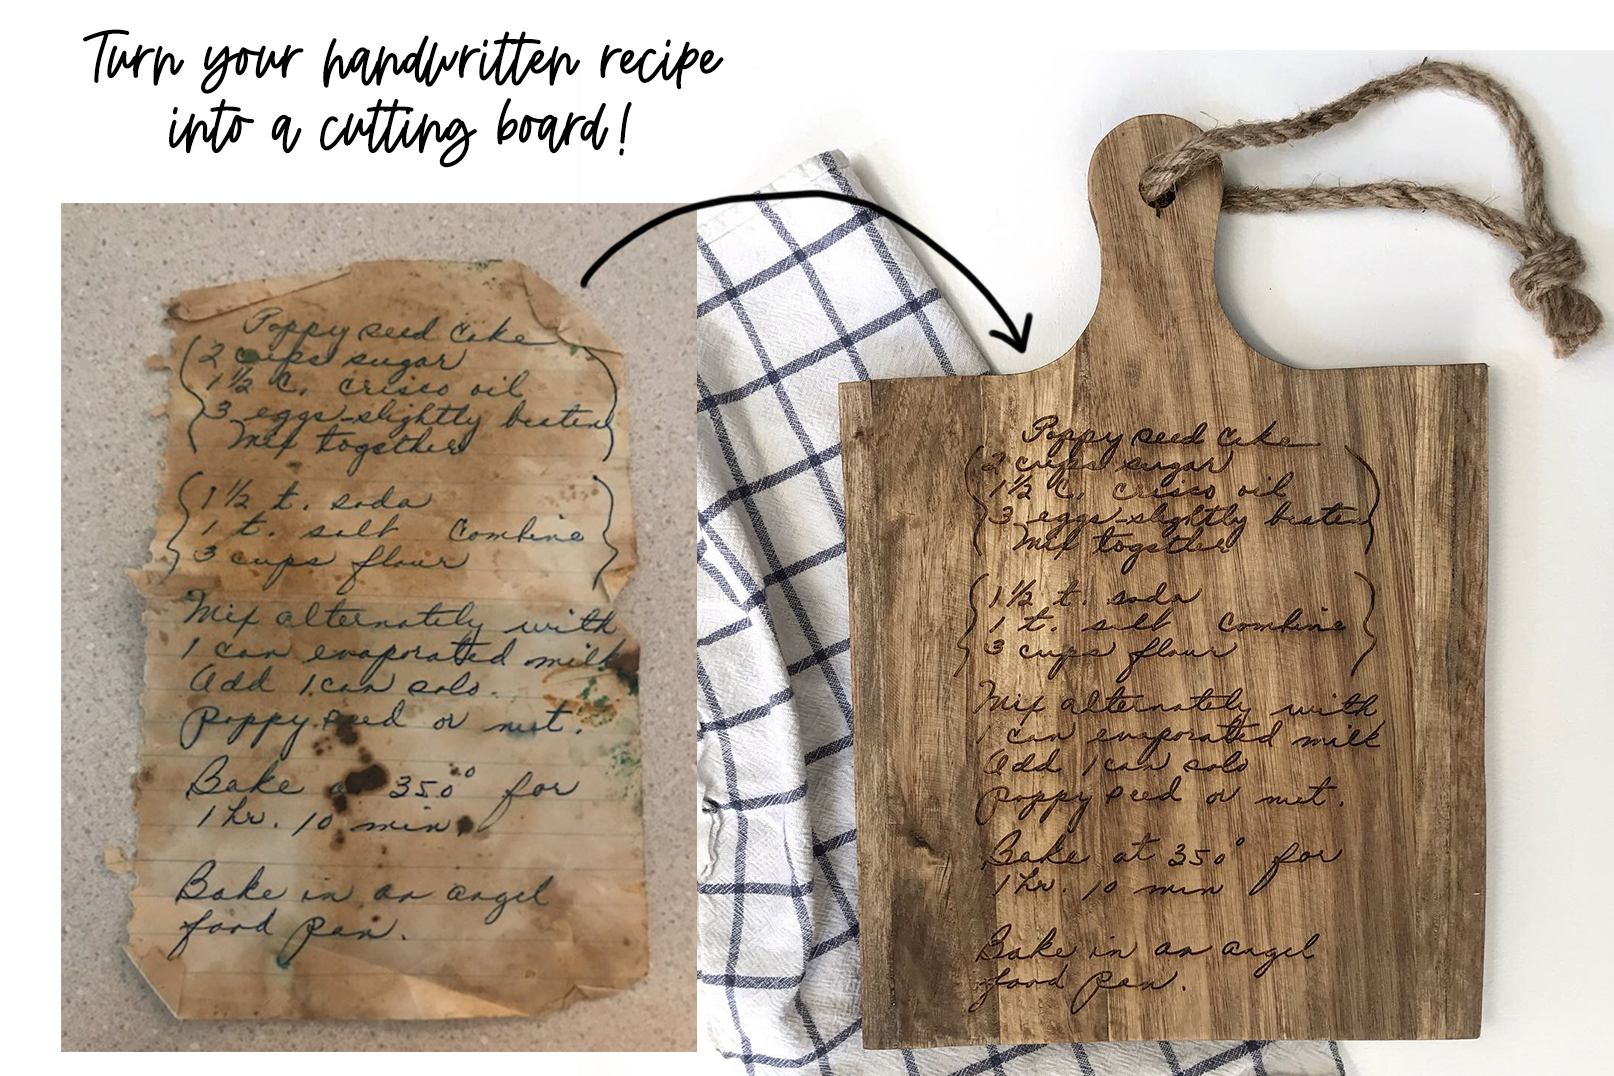 Turn your handwritten recipe
into a cutting board!
Poppy seed Cake
2 cups sugar
1 1/2 C. crisco oil
3 eggs-slightly beaten
Mix together
1 1/2 t. soda
1 t. salt Combine
3 cups flour
Mix alternately with
1 can evaporated milk
Add 1 can solo.
poppy seed or nut.
Bake at 350° for
1 hr. 10 min.
Bake in an angel
food pan.
Poppy seed Cake
2 cups sugar
1 1/2 C. crisco oil
3 eggs-slightly beaten
Mix together
1 1/2 t. soda
1 t. salt Combine
3 cups flour
Mix alternately with
1 can evaporated milk
Add 1 can solo
poppy seed or nut.
Bake at 350° for
1 hr. 10 min
Bake in an angel
food pan.